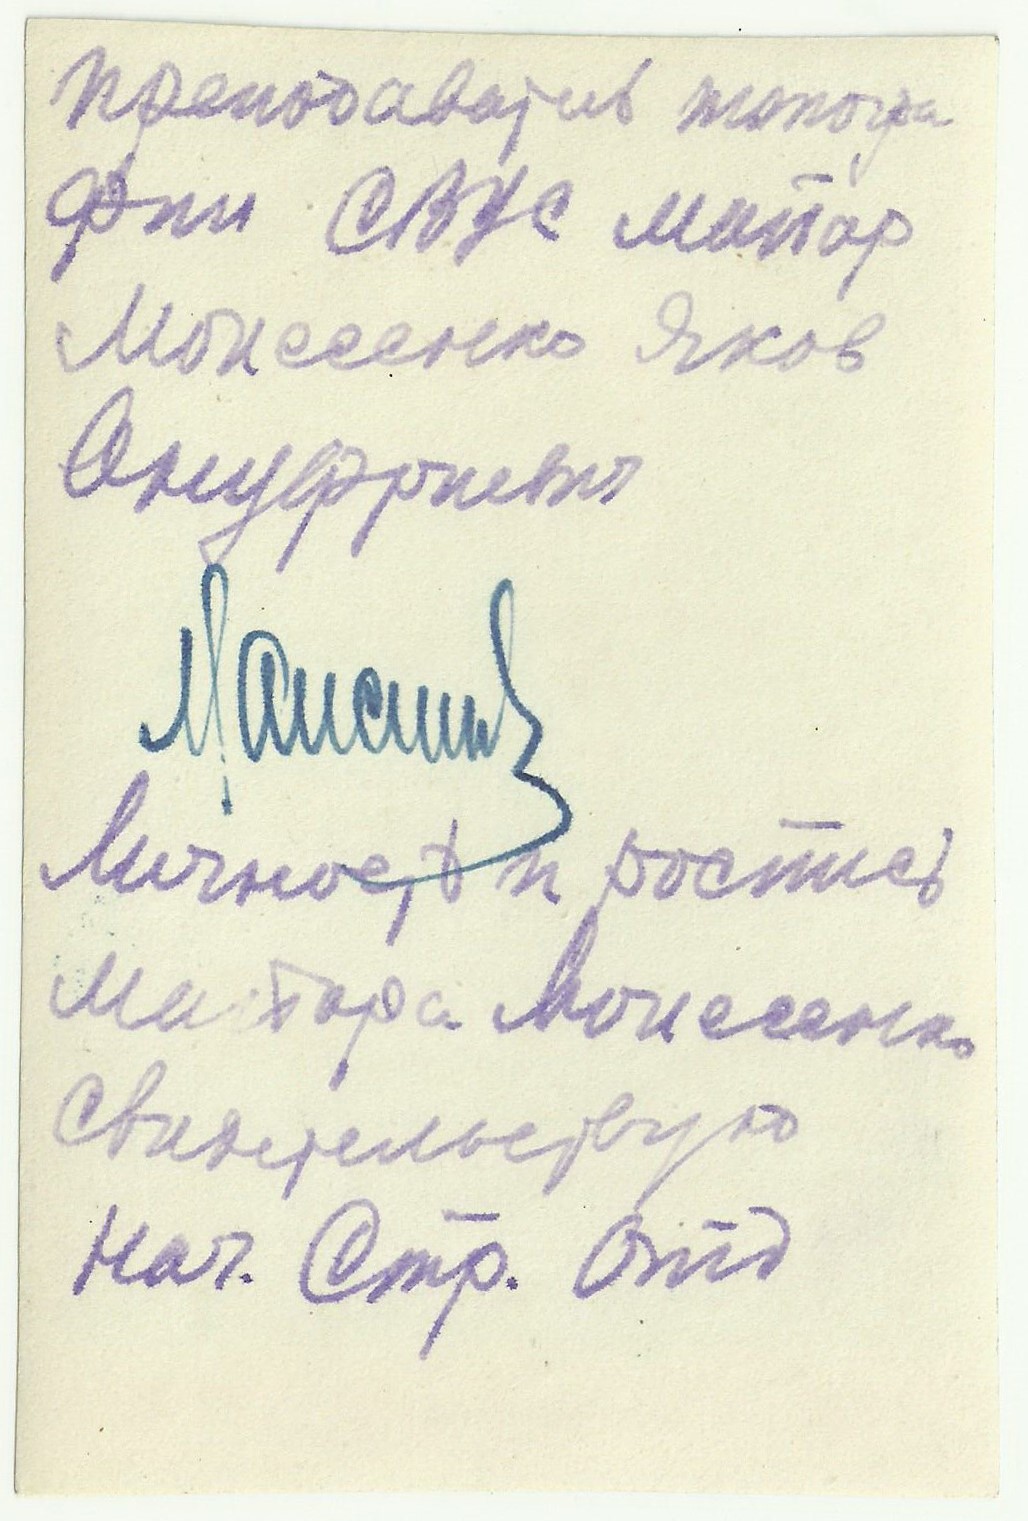 Преподаватель топогра
фии СВУС майор
Моисеенко Яков
Ануфриевич
Личность и роспись
майора Моисеенко
свидетельствую
Нач. Стр. Отд